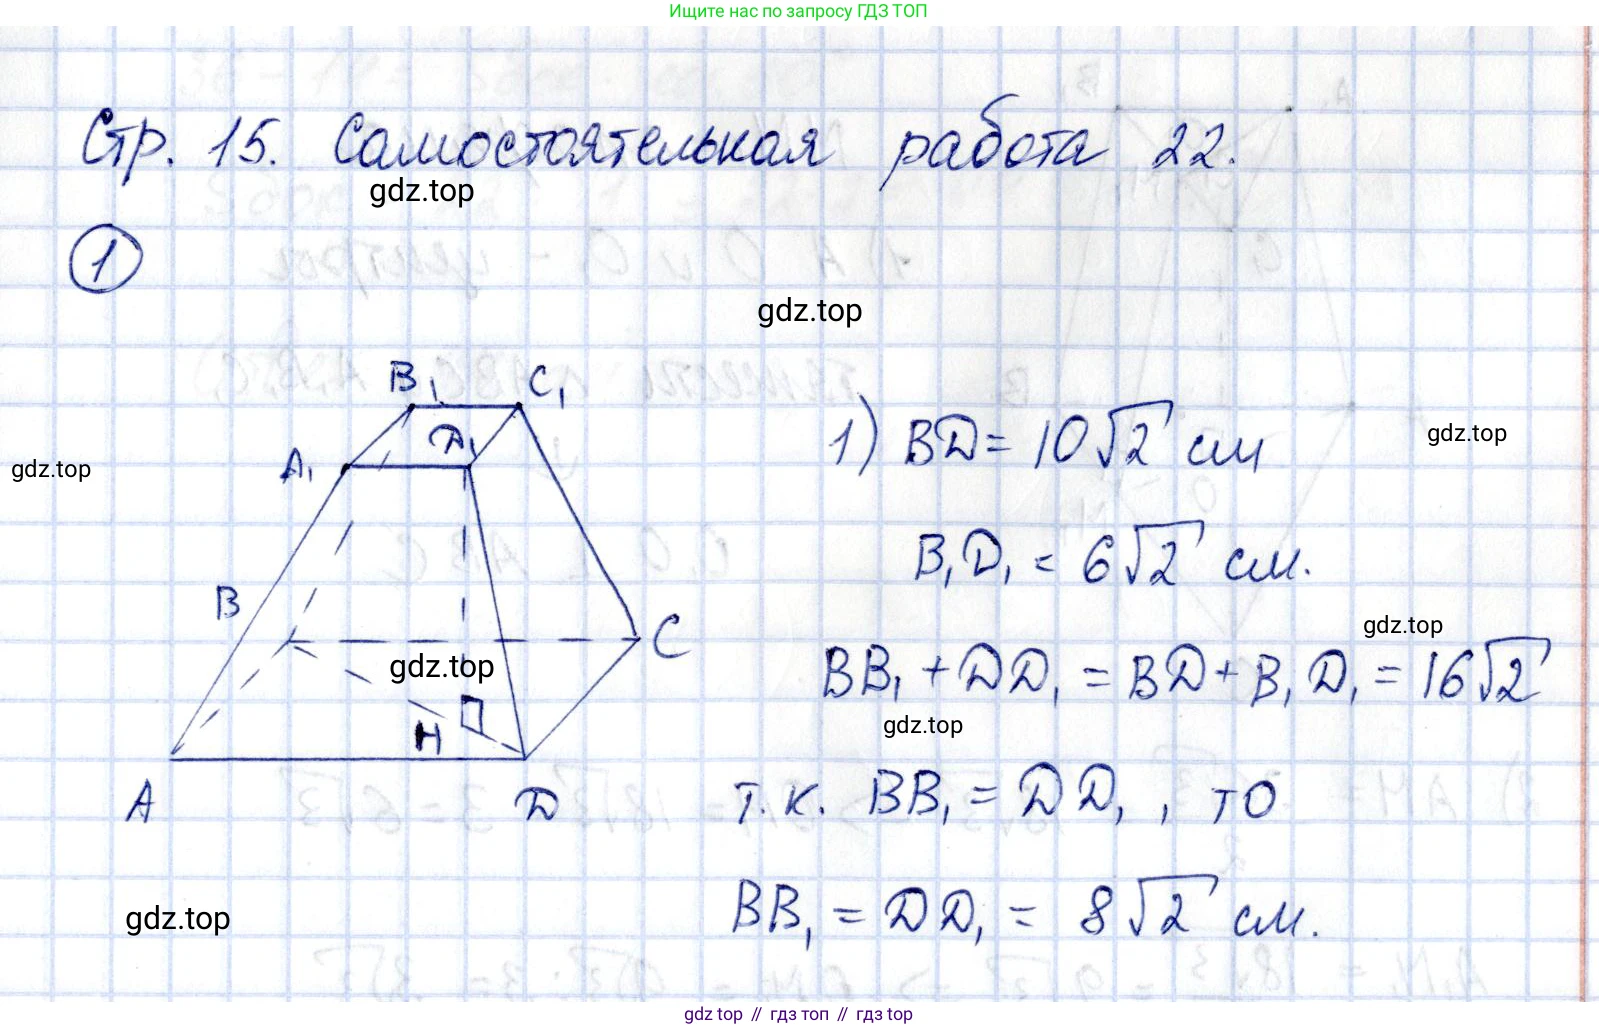 Ищите нас по запросу ГДЗ ТОП
Стр. 15. Самостоятельная работа 22.
gdz.top
1
gdz.top
B₁ C₁
A₁ D₁
1) BD = 10√2 см
gdz.top
gdz.top
B₁D₁ = 6√2 см.
B C
gdz.top
gdz.top
BB₁ + DD₁ = BD + B₁D₁ = 16√2
gdz.top
H
A D
т.к. BB₁ = DD₁, то
BB₁ = DD₁ = 8√2 см.
gdz.top
gdz top // гдз топ // гдз top